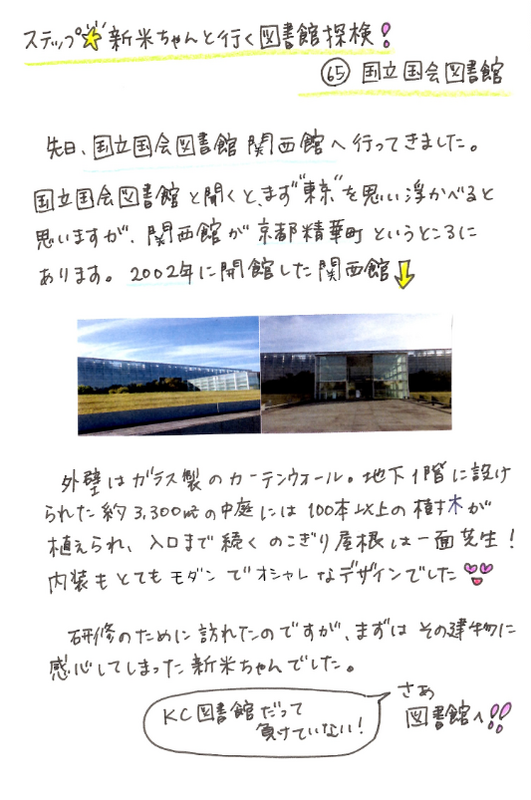 ステップ☆新米ちゃんと行く図書館探検!
㊿ 国立国会図書館
先日、国立国会図書館 関西館へ行ってきました。
国立国会図書館と聞くと、まず"東京"を思い浮かべると
思いますが、関西館が京都精華町というところに
あります。2002年に開館した関西館⇩
外壁はガラス製のカーテンウォール。地下1階に設け
られた約3,300㎡の中庭には100本以上の樹木が
植えられ、入口まで続くのこぎり屋根は一面芝生!
内装もとてもモダンでオシャレなデザインでした
研修のために訪れたのですが、まずはその建物に
感心してしまった新米ちゃんでした。
KC図書館だって
負けていない!
さあ
図書館へ!!